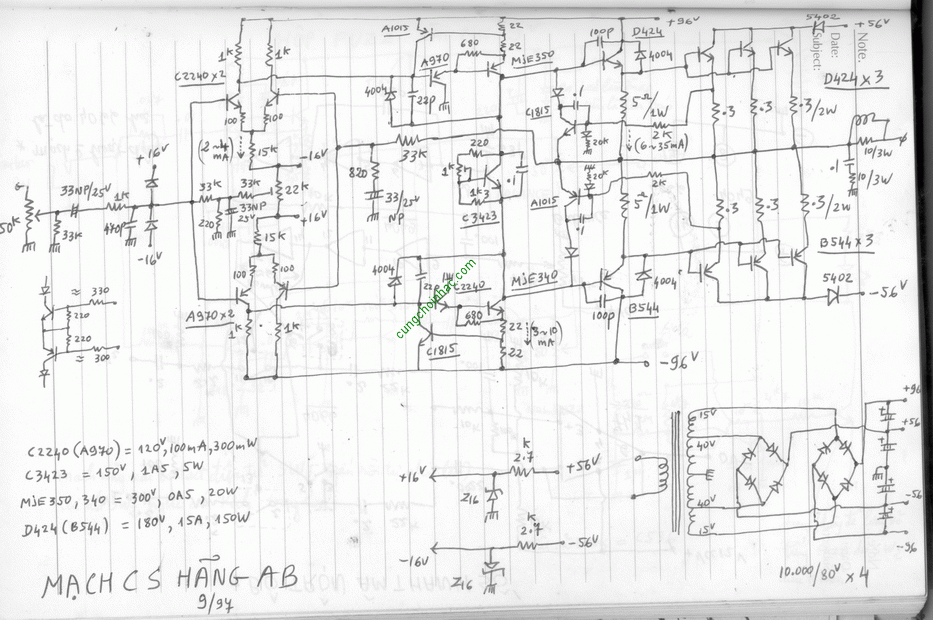 A1015
22
22
680
A970
MJE350
100p
D424
4004
+96V
5402
+56V
Note.
Date:
Subject:
D424 × 3
1K
1K
C2240 × 2
4004
22p
C1815
.1
5Ω/1W
2K
(6~35mA)
20K
.3
.3
.3/2W
10/3W
.1
10/3W
100
100
(2~4 mA)
15K
-16V
33K
220
1K
1K
.1
C3423
820
33/25V
NP
+16V
50K
33NP/25V
1K
33K
470p
-16V
33K
33K
220
33NP
25V
22K
+16V
15K
20K
2K
A1015
.1
5Ω/1W
.3
.3
.3/2W
B544 × 3
5402
-56V
100
100
A970 × 2
1K
1K
4004
22p
1K
C2240
680
MJE340
22
22
(3~10 mA)
C1815
100p
B544
4004
-96V
≈ 330
220
220
≈ 300
cungchoinhac.com
C2240 (A970) = 120V, 100mA, 300mW
C3423 = 150V, 1A5, 5W
MJE350, 340 = 300V, 0A5, 20W
D424 (B544) = 180V, 15A, 150W
+16V
K
2.7
+56V
Z16
-16V
K
2.7
-56V
Z16
15V
40V
40V
15V
+96
+56
-56
-96
10.000/80V × 4
MẠCH CS HẠNG AB
9/97